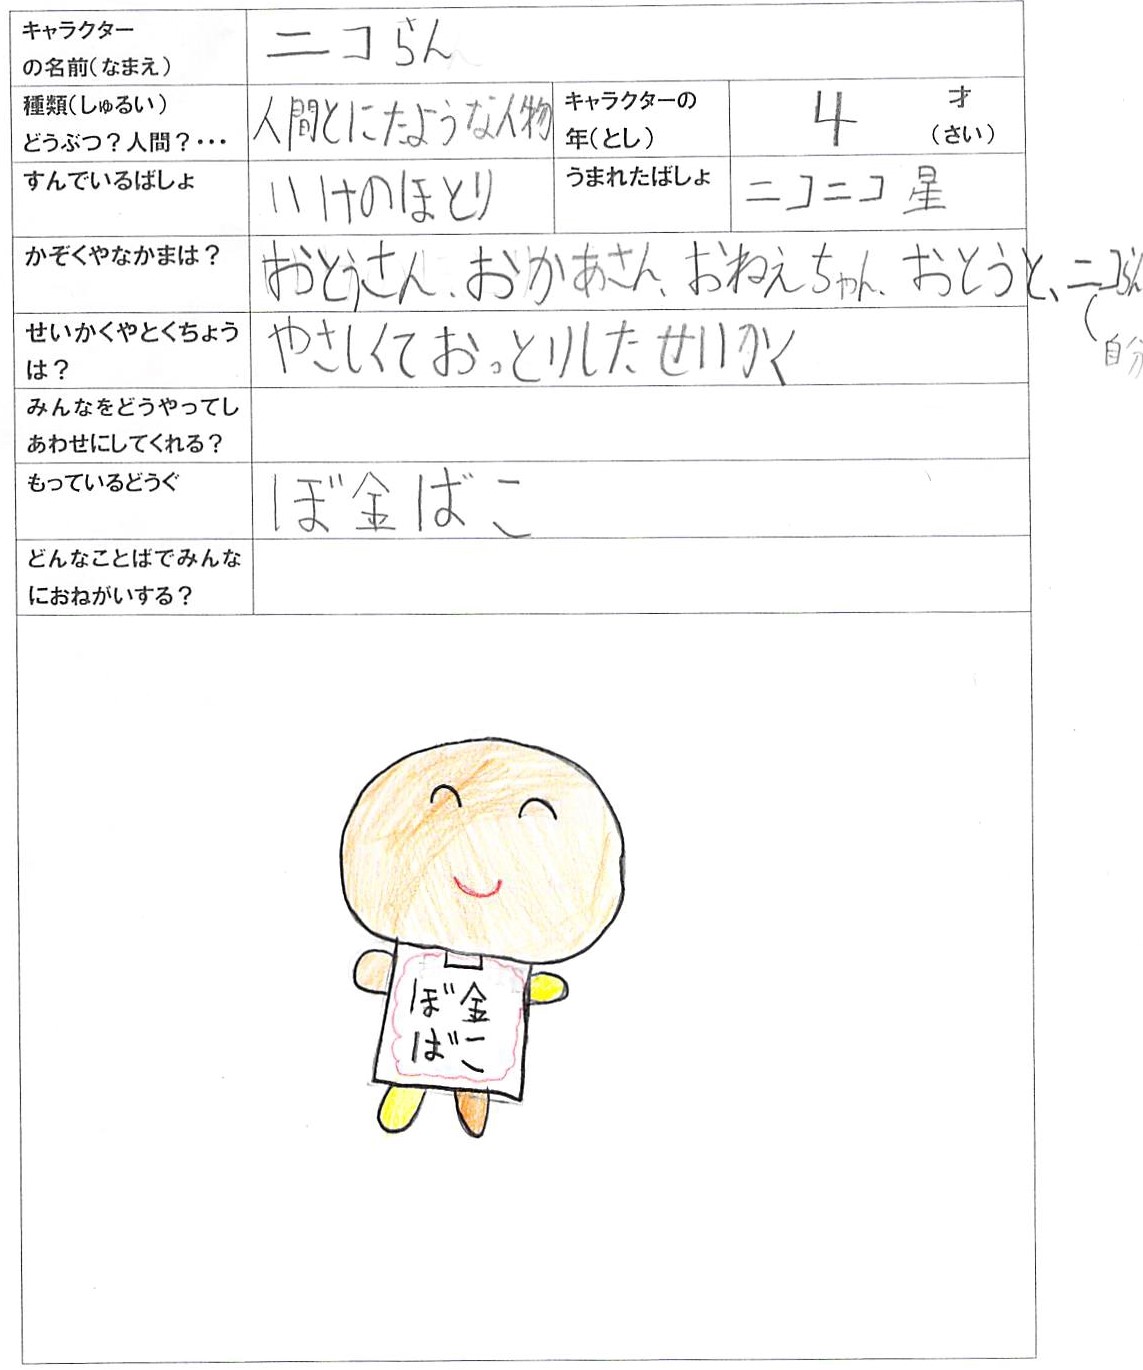 キャラクター
の名前(なまえ)
ニコらん
種類(しゅるい)
どうぶつ?人間?・・・
人間とにたような人物
キャラクターの
年(とし)
4 才
(さい)
すんでいるばしょ
いけのほとり
うまれたばしょ
ニコニコ星
かぞくやなかまは?
おとうさん、おかあさん、おねえちゃん、おとうと、ニコらん
自分
せいかくやとくちょう
は?
やさしくておっとりしたせいかく
みんなをどうやってし
あわせにしてくれる?
もっているどうぐ
ぼ金ばこ
どんなことばでみんな
におねがいする?
ぼ金
ばこ